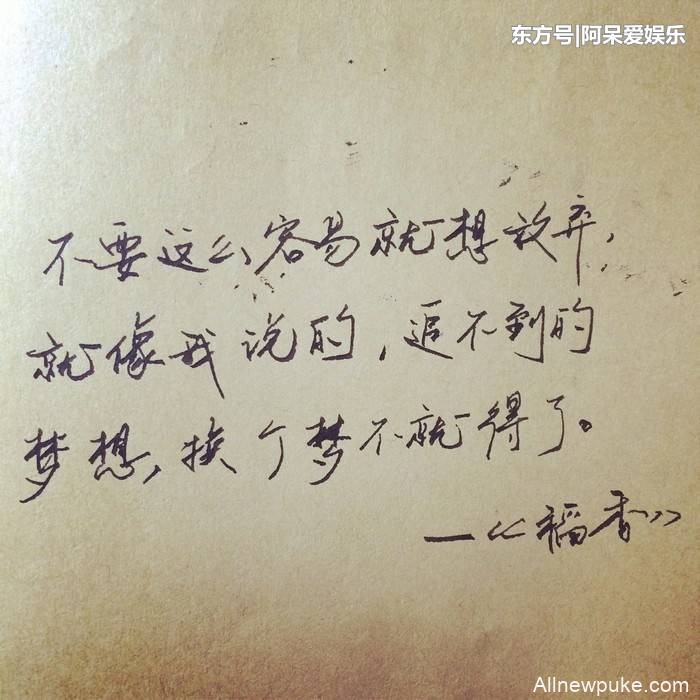 东方号|阿呆爱娱乐
不要这么容易就想放弃，
就像我说的，追不到的
梦想，换个梦不就得了。
—《稻香》
Allnewpuke.com